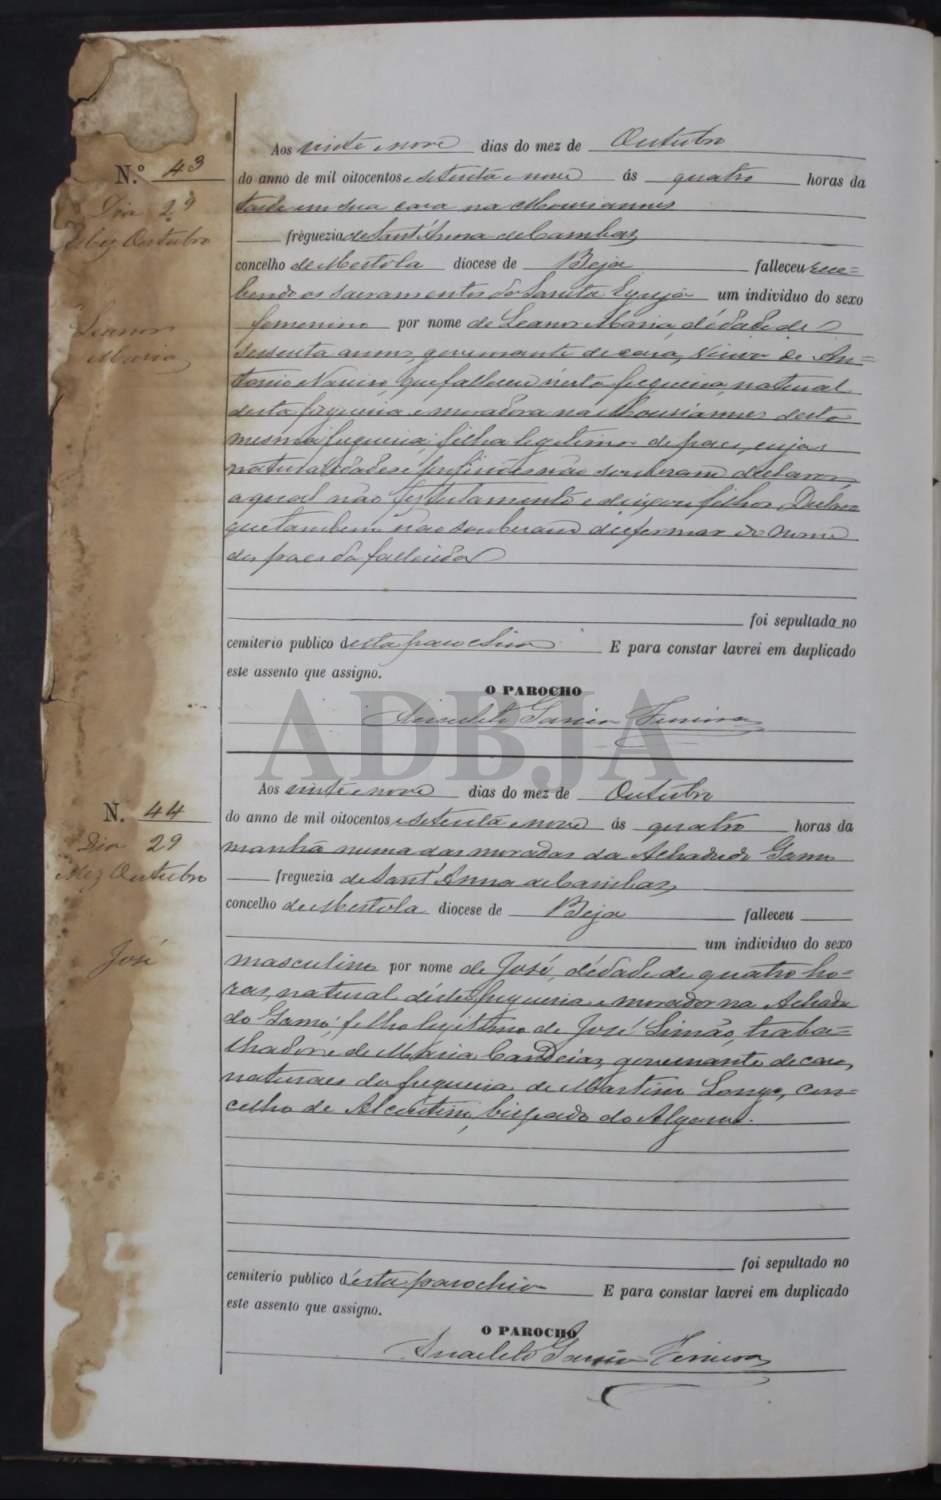 Nº 43
Dia 29
Mez Outubro
Leanor
Maria
Aos vinte e nove dias do mez de Outubro
do anno de mil oitocentos e setenta e nove ás quatro horas da
tarde em sua casa na
freguezia de Sant'Anna de Cambas
concelho de Mertola diocese de Beja falleceu rece=
bendo os sacramentos da Santa Egreja um individuo do sexo
femenino por nome de Leanor Maria, d'édade de
sessenta annos, governante de casa, viuva de An=
tonio que falleceu n'esta freguezia, natural
desta freguezia e moradora na desta
mesma freguezia, filha legitima de paes, cujas
naturalidades e profissões não souberam declarar
a qual não fez testamento e deixou filhos. Declaro
que tambem não souberam informar do nome
dos paes da fallecida
foi sepultada no
cemiterio publico d'esta parochia E para constar lavrei em duplicado
este assento que assigno.
O PAROCHO
Anacleto Garcia Ferreira
ADBJA
N. 44
Dia 29
Mez Outubro
José
Aos vinte e nove dias do mez de Outubro
do anno de mil oitocentos e setenta e nove ás quatro horas da
manhã numa das moradas da Achada do Gamo
freguezia de Sant'Anna de Cambas
concelho de Mertola diocese de Beja falleceu
um individuo do sexo
masculino por nome de José, d'édade de quatro ho=
ras, natural d'esta freguezia e morador na Achada
do Gamo, filho legitimo de José Simão, traba=
lhador e de Maria Candeias, governante de casa,
naturaes da freguezia de Martim Longo, con=
celho de Alcoutim, bispado do Algarve.
foi sepultado no
cemiterio publico d'esta parochia E para constar lavrei em duplicado
este assento que assigno.
O PAROCHO
Anacleto Garcia Ferreira